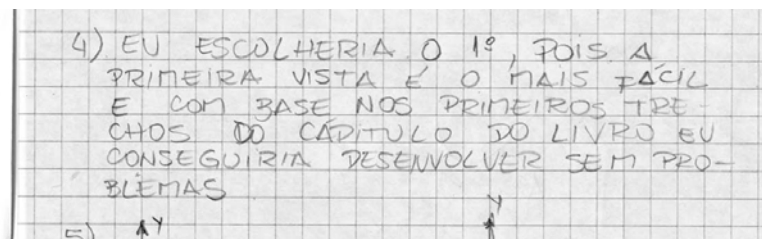 4) EU ESCOLHERIA O 1º, POIS A
PRIMEIRA VISTA É O MAIS FÁCIL
E COM BASE NOS PRIMEIROS TRE-
CHOS DO CAPITULO DO LIVRO EU
CONSEGUIRIA DESENVOLVER SEM PRO-
BLEMAS
5) Y Y